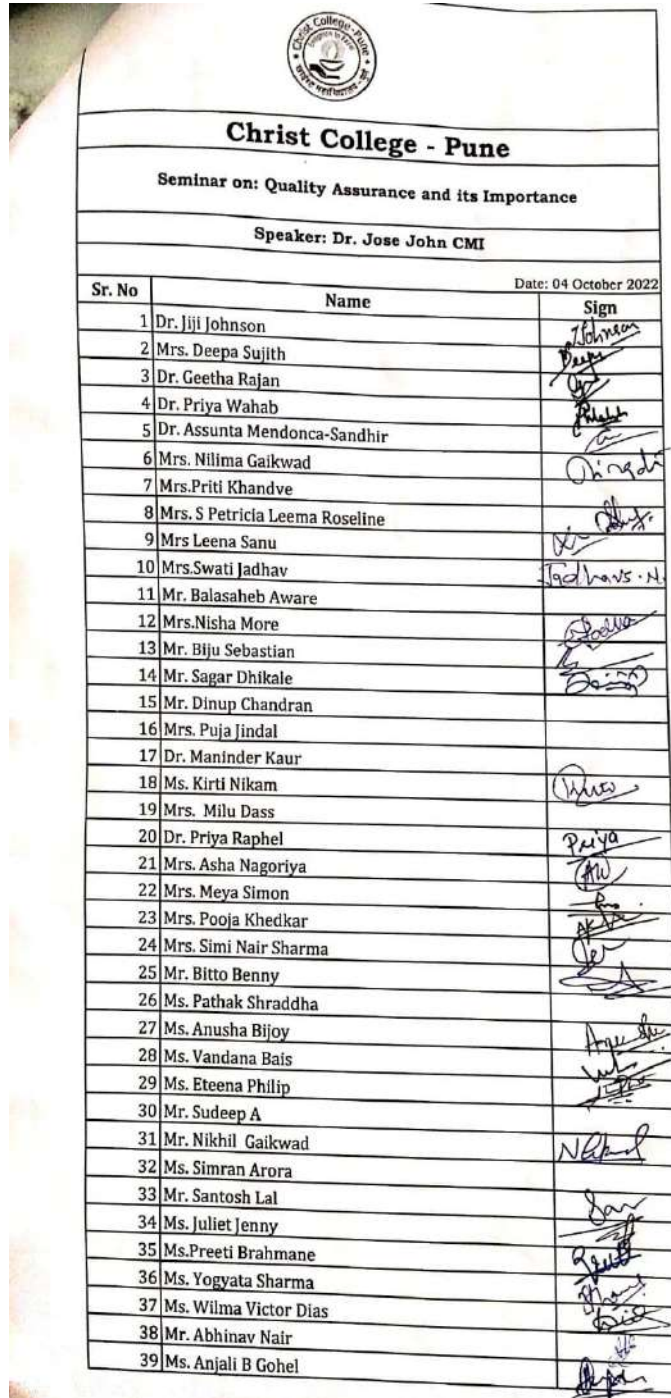 Christ College - Pune
Christ College - Pune
Seminar on: Quality Assurance and its Importance
Speaker: Dr. Jose John CMI
Date: 04 October 2022
Sr. No Name Sign
1 Dr. Jiji Johnson Johnson
2 Mrs. Deepa Sujith Deepa
3 Dr. Geetha Rajan
4 Dr. Priya Wahab
5 Dr. Assunta Mendonca-Sandhir
6 Mrs. Nilima Gaikwad
7 Mrs.Priti Khandve
8 Mrs. S Petricia Leema Roseline
9 Mrs Leena Sanu
10 Mrs.Swati Jadhav Jadhavs.N.
11 Mr. Balasaheb Aware
12 Mrs.Nisha More
13 Mr. Biju Sebastian
14 Mr. Sagar Dhikale
15 Mr. Dinup Chandran
16 Mrs. Puja Jindal
17 Dr. Maninder Kaur
18 Ms. Kirti Nikam
19 Mrs. Milu Dass
20 Dr. Priya Raphel Priya
21 Mrs. Asha Nagoriya
22 Mrs. Meya Simon
23 Mrs. Pooja Khedkar
24 Mrs. Simi Nair Sharma
25 Mr. Bitto Benny
26 Ms. Pathak Shraddha
27 Ms. Anusha Bijoy
28 Ms. Vandana Bais
29 Ms. Eteena Philip
30 Mr. Sudeep A
31 Mr. Nikhil Gaikwad
32 Ms. Simran Arora
33 Mr. Santosh Lal
34 Ms. Juliet Jenny
35 Ms.Preeti Brahmane
36 Ms. Yogyata Sharma
37 Ms. Wilma Victor Dias
38 Mr. Abhinav Nair
39 Ms. Anjali B Gohel